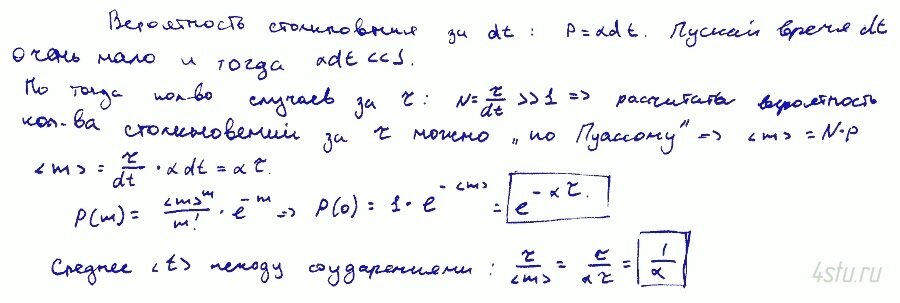 Вероятность столкновения за dt : P = αdt. Пускай время dt
очень мало и тогда αdt << 1.
Но тогда кол-во случаев за τ : N = τ/dt >> 1 => расчитать вероятность
кол-ва столкновений за τ можно „по Пуассону" => <m> = N·p
<m> = τ/dt · αdt = ατ.
P(m) = <m>^m/m! · e^-m => P(0) = 1 · e^-<m> = e^-ατ.
Среднее <t> между соударениями : τ/<m> = τ/ατ = 1/α
4stu.ru